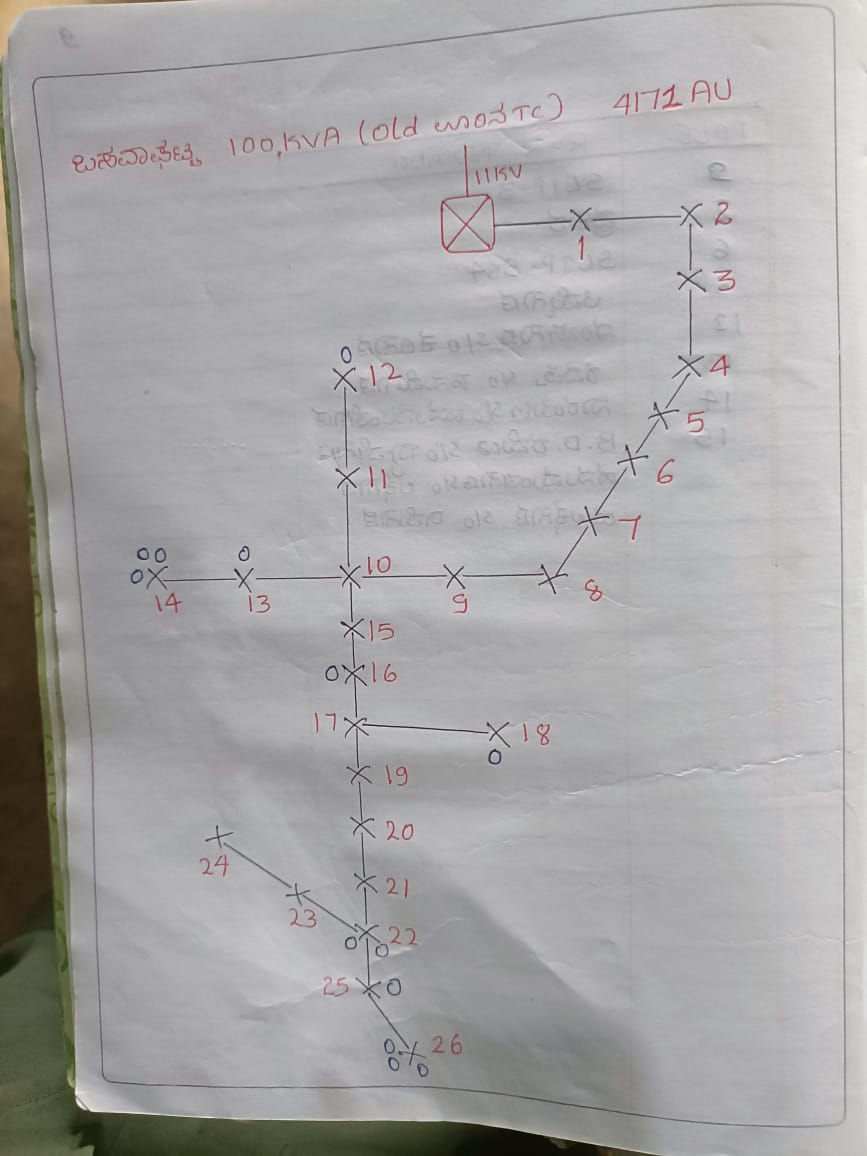 100,KVA (Old ಊರಿನ TC) 4171 AU
11KV
1
2
3
4
5
6
7
8
9
10
11
12
13
14
15
16
17
18
19
20
21
22
23
24
25
26